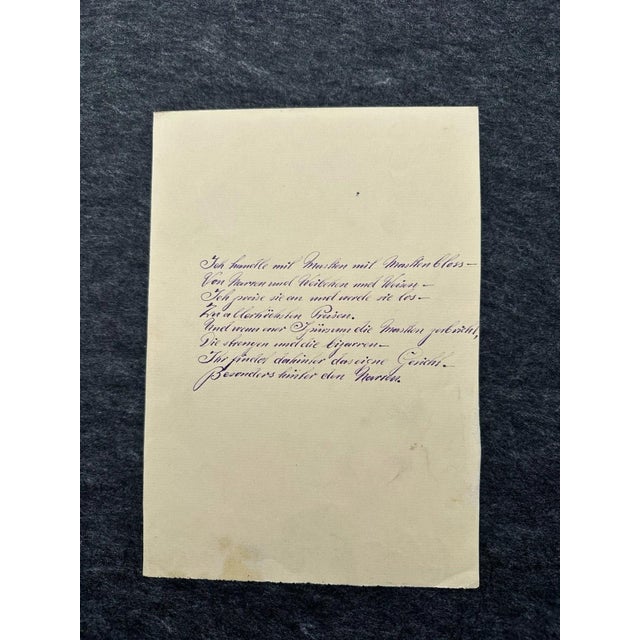 Ich handle mit Masken mit Masken bloss –
Von Narren und Weibchen und Weisen –
Ich preise sie an und werde sie los –
Zu allerhöchsten Preisen.
Und wenn euer die Masken zerbricht,
Die strengen und die bizarren –
Ihr findet dahinter das eigne Gesicht –
Besonders hinter den Narren.